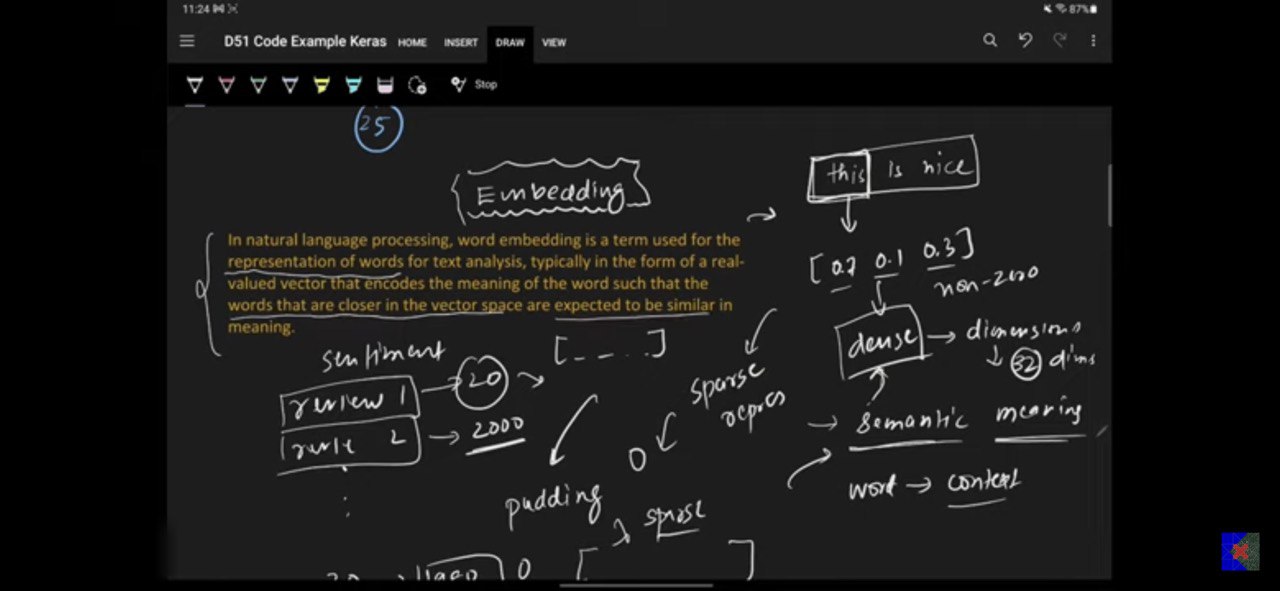 11:24
87%
D51 Code Example Keras HOME INSERT DRAW VIEW
Stop
25
Embedding
this is nice
In natural language processing, word embedding is a term used for the
representation of words for text analysis, typically in the form of a real-
valued vector that encodes the meaning of the word such that the
words that are closer in the vector space are expected to be similar in
meaning.
[0.7 0.1 0.3]
non-zero
dense → dimensions
32 dims
sentiment
[----]
review 1 → 20
2 → 2000
sparse
repres
0
semantic meaning
word → context
pudding
0
[ ]